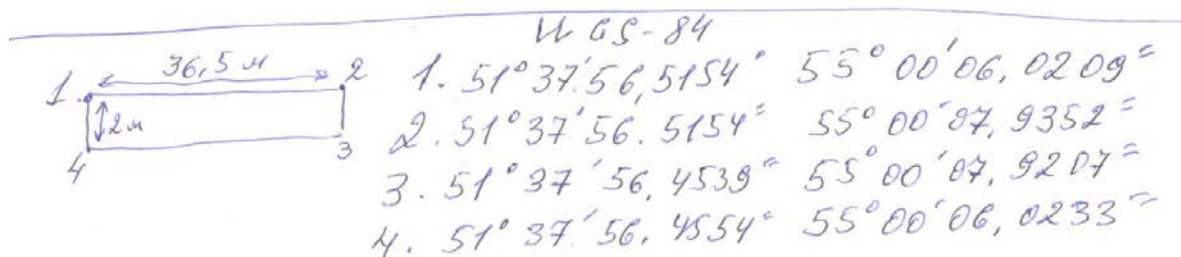 WGS-84
36,5 м
1 2
2м
4 3
1. 51° 37' 56,5154" 55° 00' 06,0209"
2. 51° 37' 56.5154" 55° 00' 07,9352"
3. 51° 37' 56,4539" 55° 00' 07,9207"
4. 51° 37' 56.4554" 55° 00' 06,0233"